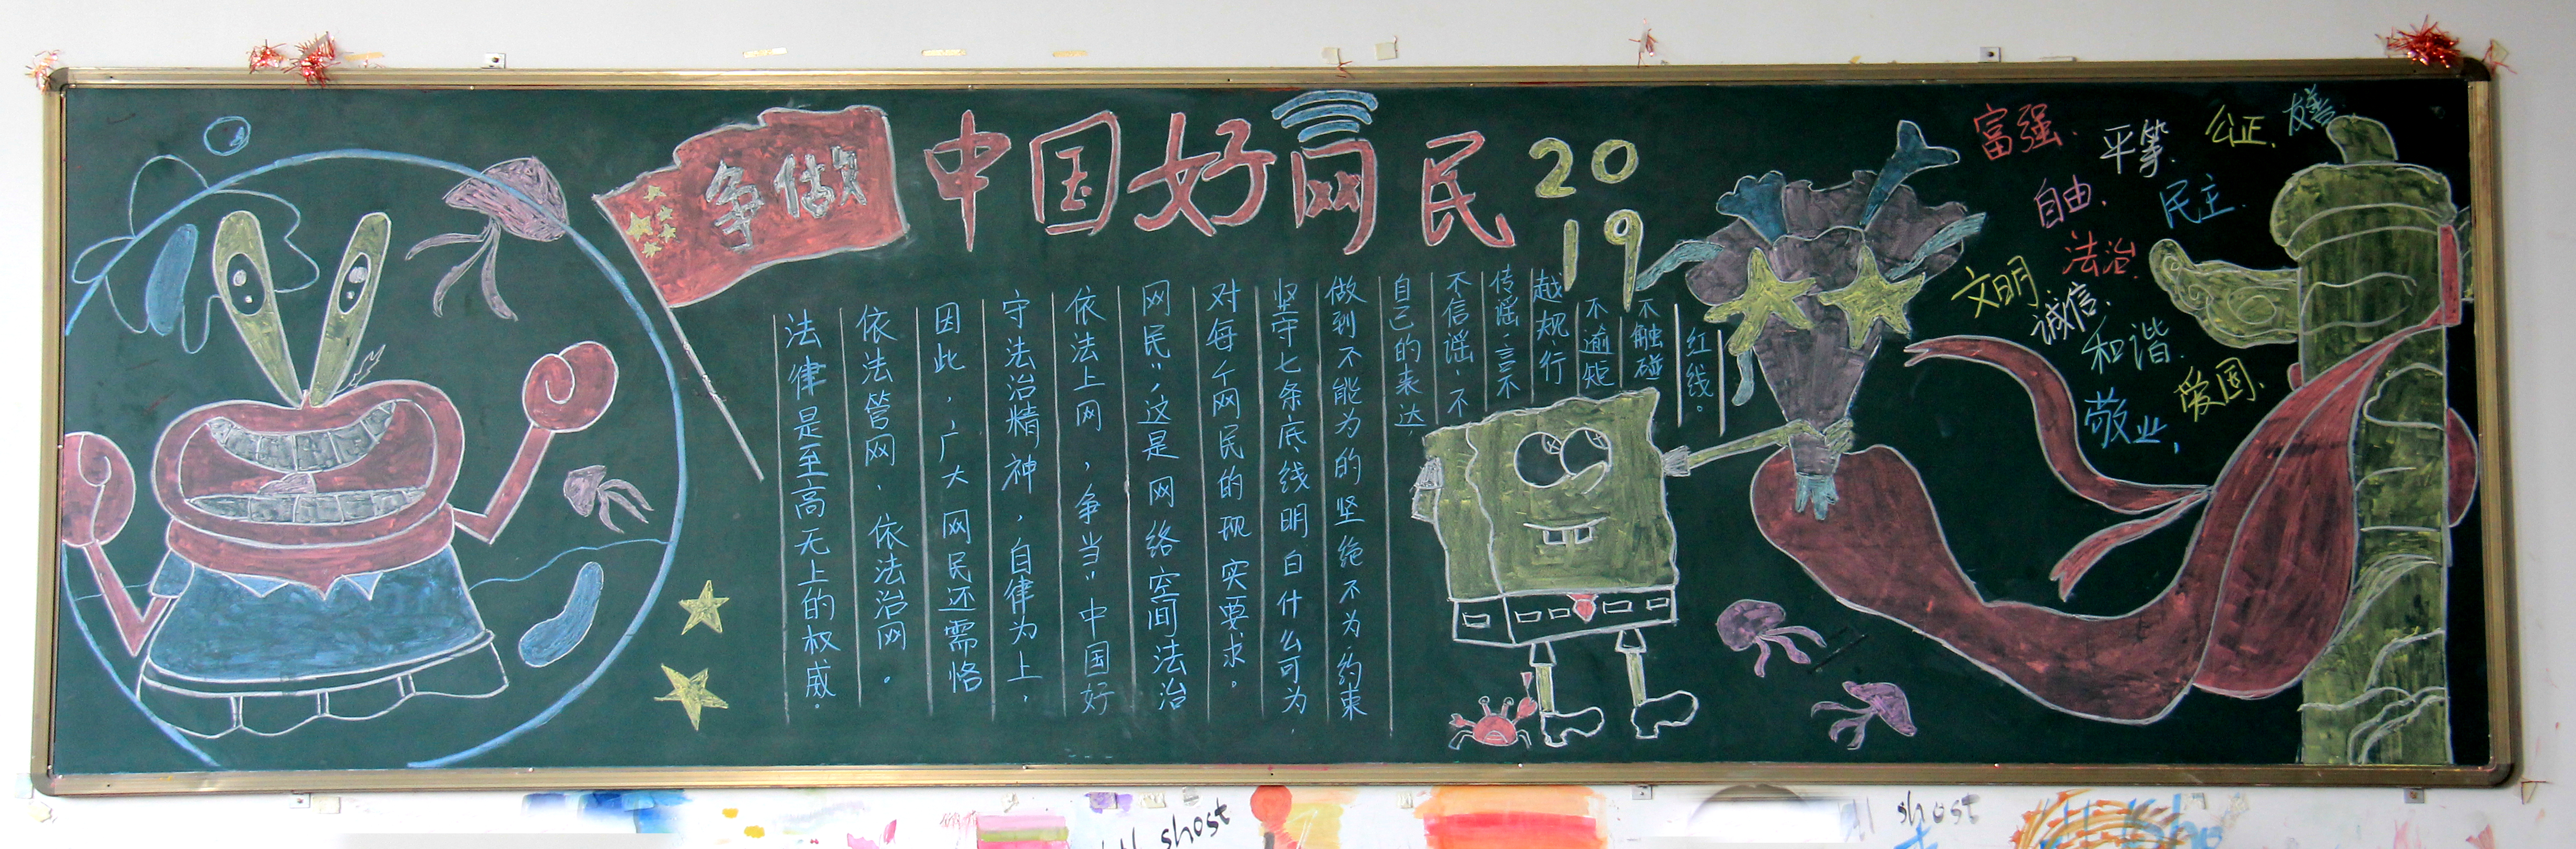 争做
中国好网民
2019
法律是至高无上的权威。
依法管网、依法治网。
因此，广大网民还需恪
守法治精神，自律为上，
依法上网，争当“中国好
网民”，这是网络空间法治
对每个网民的现实要求。
坚守七条底线明白什么可为，
做到不能为的坚绝不为，约束
自己的表达，
不信谣，不
传谣，言不
越规，行
不逾矩
不触碰
红线。
富强、
平等、
公正、
友善、
自由、
民主、
法治、
文明、
诚信、
和谐、
爱国、
敬业，
shost
shost